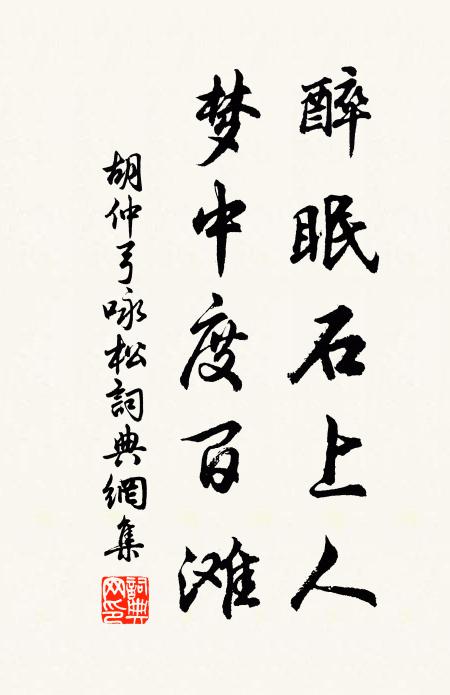 醉眠石上人
梦中度百滩
胡仲弓咏松詞典網集
詞典
网印